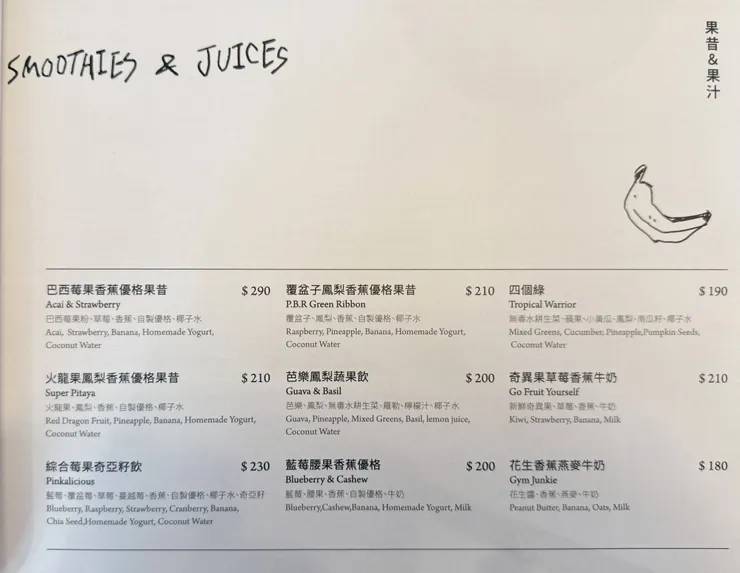 SMOOTHIES & JUICES
果昔&果汁
巴西莓果香蕉優格果昔 $290
Acai & Strawberry
巴西莓果粉、草莓、香蕉、自製優格、椰子水
Acai, Strawberry, Banana, Homemade Yogurt,
Coconut Water
覆盆子鳳梨香蕉優格果昔 $210
P.B.R Green Ribbon
覆盆子、鳳梨、香蕉、自製優格、椰子水
Raspberry, Pineapple, Banana, Homemade Yogurt,
Coconut Water
四個綠 $190
Tropical Warrior
無毒水耕生菜、蘋果、小黃瓜、鳳梨、南瓜籽、椰子水
Mixed Greens, Cucumber, Pineapple,Pumpkin Seeds,
Coconut Water
火龍果鳳梨香蕉優格果昔 $210
Super Pitaya
火龍果、鳳梨、香蕉、自製優格、椰子水
Red Dragon Fruit, Pineapple, Banana, Homemade Yogurt,
Coconut Water
芭樂鳳梨蔬果飲 $200
Guava & Basil
芭樂、鳳梨、無毒水耕生菜、羅勒、檸檬汁、椰子水
Guava, Pineapple, Mixed Greens, Basil, lemon juice,
Coconut Water
奇異果草莓香蕉牛奶 $210
Go Fruit Yourself
新鮮奇異果、草莓、香蕉、牛奶
Kiwi, Strawberry, Banana, Milk
綜合莓果奇亞籽飲 $230
Pinkalicious
藍莓、覆盆莓、草莓、蔓越莓、香蕉、自製優格、椰子水、奇亞籽
Blueberry, Raspberry, Strawberry, Cranberry, Banana,
Chia Seed,Homemade Yogurt, Coconut Water
藍莓腰果香蕉優格 $200
Blueberry & Cashew
藍莓、腰果、香蕉、自製優格、牛奶
Blueberry,Cashew,Banana, Homemade Yogurt, Milk
花生香蕉燕麥牛奶 $180
Gym Junkie
花生醬、香蕉、燕麥、牛奶
Peanut Butter, Banana, Oats, Milk